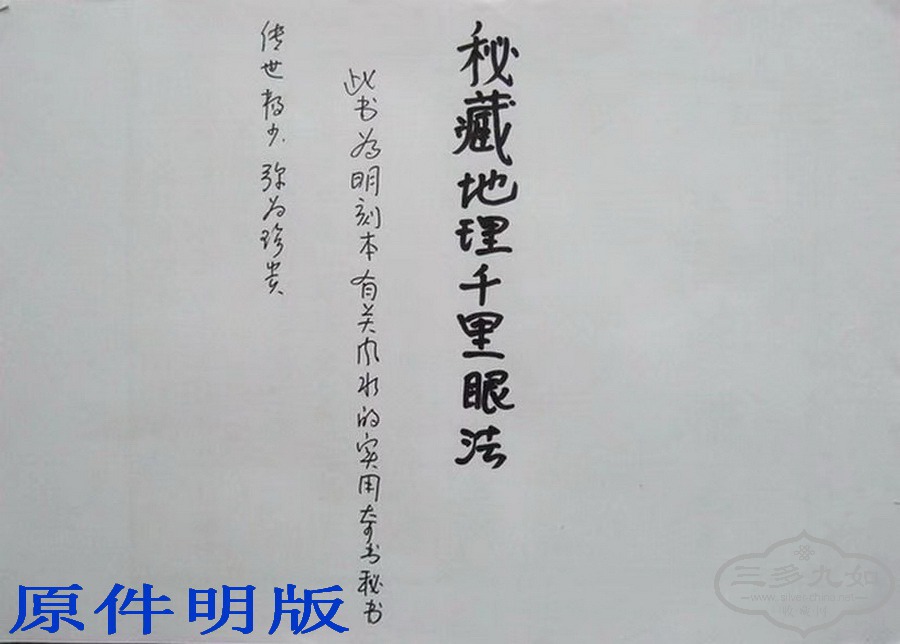 秘藏地理千里眼法
此书为明刻本有关风水的实用奇书秘书
传世极少.弥为珍贵
原件明版
三多九如